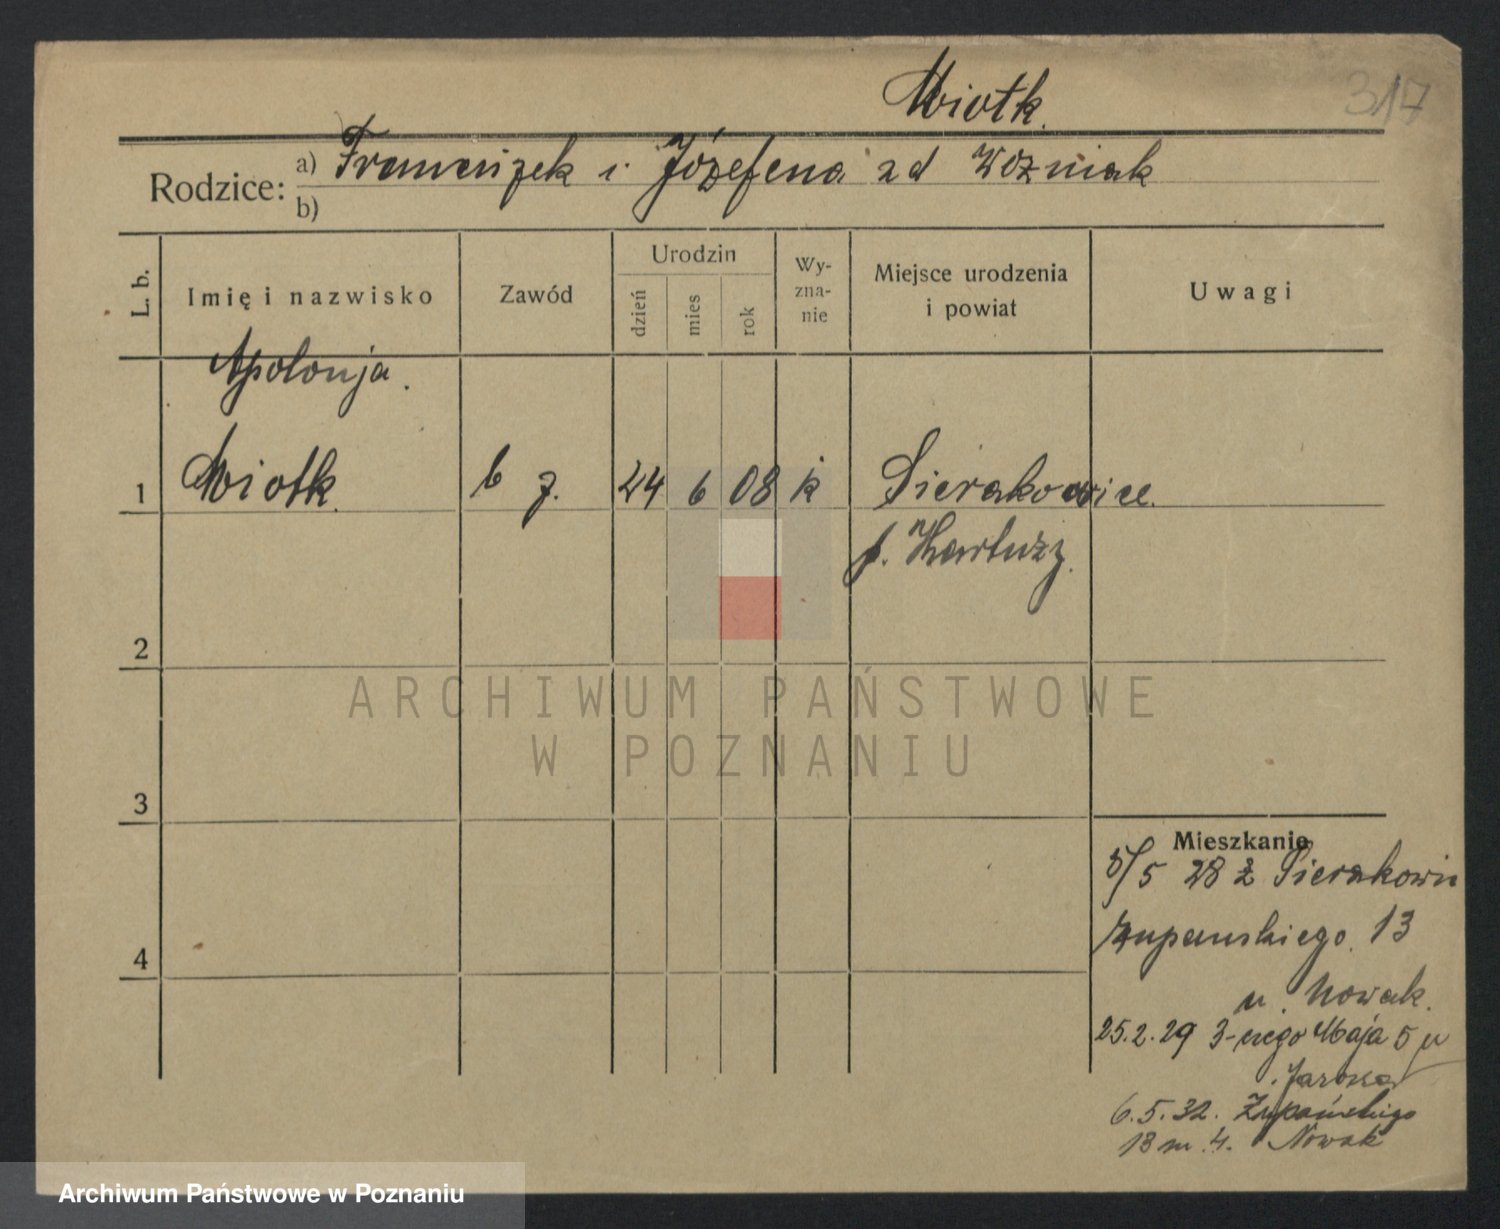 Miotk.
317
Rodzice:
a) Franciszek i Józefena zd Woźniak
b)
L. b.
Imię i nazwisko
Zawód
Urodzin
dzień
mies
rok
Wy-
zna-
nie
Miejsce urodzenia
i powiat
Uwagi
Apolonja.
1 Miotk. b z. 24 6 08 k Sierakowice.
p. Kartuzy.
2
ARCHIWUM PAŃSTWOWE
W POZNANIU
3
Mieszkanie
5/5 28 z Sierakowic
Żupanskiego 13
u. Nowak.
4
25.2.29 3-ciego Maja 5 u
Jarosza
6.5.32. Żupańskiego
13 m. 4. Nowak
Archiwum Państwowe w Poznaniu